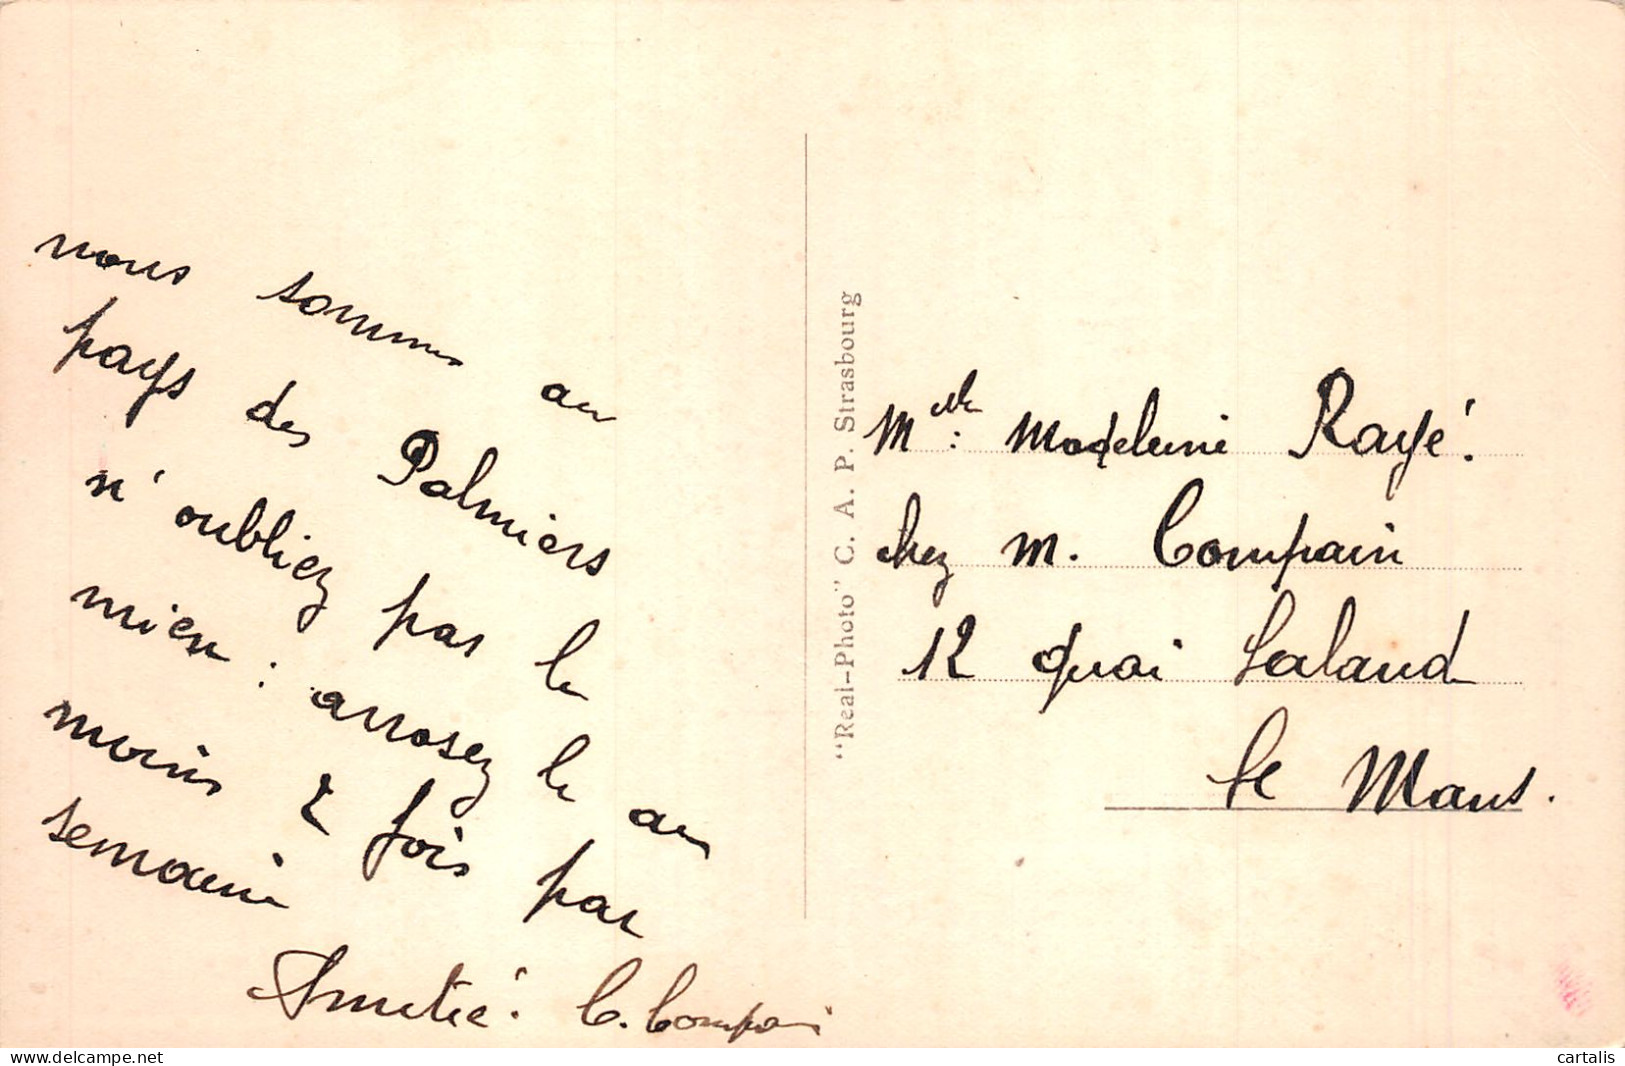 nous sommes au
pays des Palmiers
n'oubliez pas le
mien : arrosez le au
moins 2 fois par
semaine
Amitié. C. Compain
"Real-Photo" C. A. P. Strasbourg
Melle: Madeleine Rayé.
chez M. Compain
12 Quai Lalande
Le Mans.
cartalis